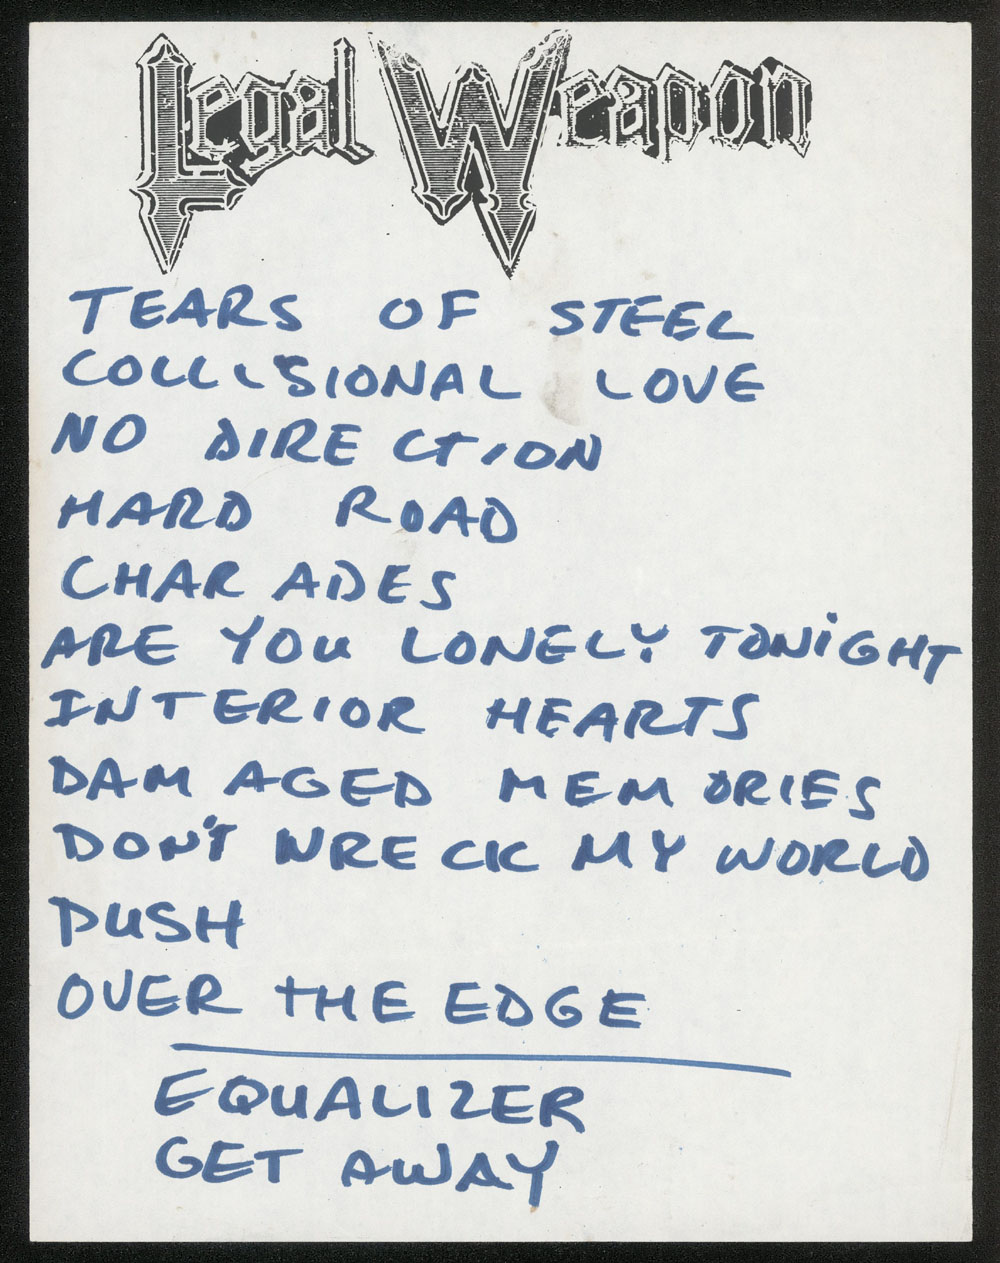 Legal Weapon
TEARS OF STEEL
COLLISIONAL LOVE
NO DIRECTION
HARD ROAD
CHARADES
ARE YOU LONELY TONIGHT
INTERIOR HEARTS
DAMAGED MEMORIES
DON'T WRECK MY WORLD
PUSH
OVER THE EDGE
EQUALIZER
GET AWAY